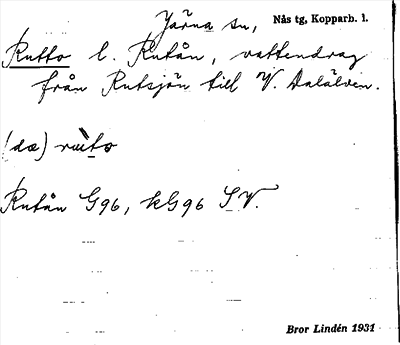 Järna sn, Nås tg, Kopparb. l.
Rutto l. Rutån, vattendrag
från Rutsjön till V. Dalälven.
(dæ) rùto
Rutån G96, kG96 SV.
Bror Lindén 1931